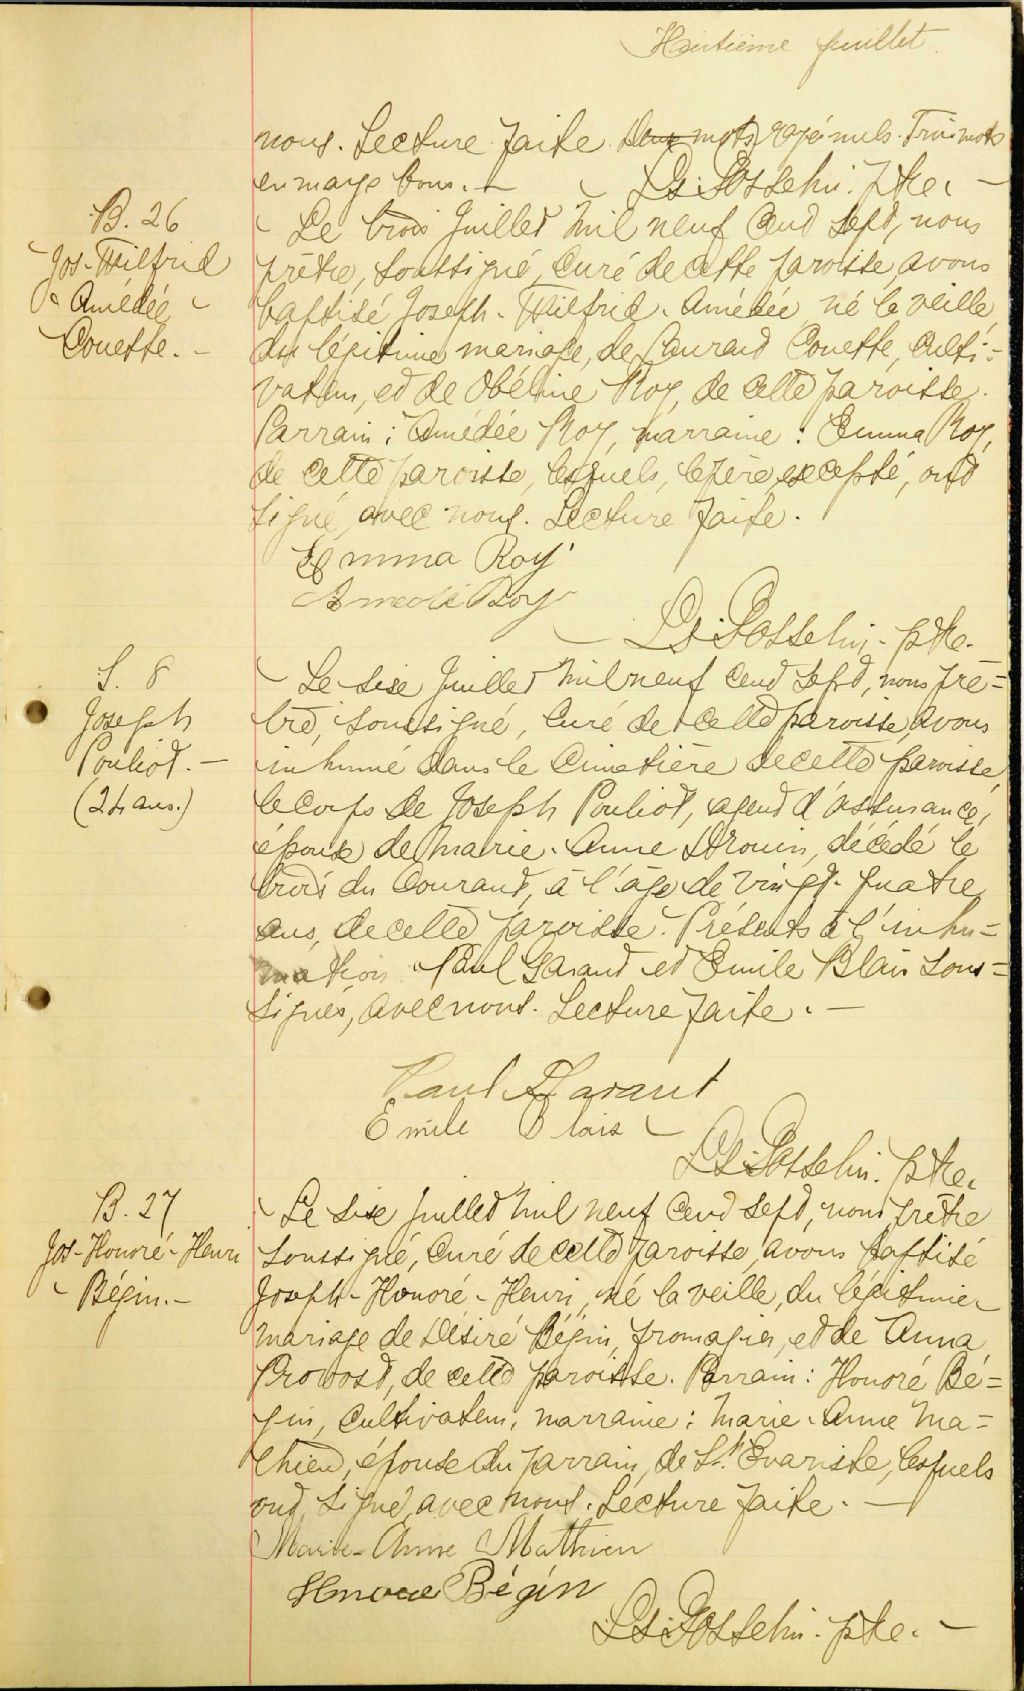 Huitième feuillet.
nous. Lecture faite. Deux mots rayés nuls. Trois mots
en marge bons. —
Ls. Gosselin. ptre. —
B. 26
Jos-Wilfrid
Amédée
Couette. —
Le trois Juillet mil neuf cent sept, nous
prêtre, soussigné, curé de cette paroisse, avons
baptisé Joseph-Wilfrid-Amédée, né la veille,
du légitime mariage, de Laurent Couette, culti-
vateur, et de Obéline Roy, de cette paroisse.
Parrain: Amédée Roy, marraine: Emma Roy,
de cette paroisse, lesquels, le père excepté, ont
signé, avec nous. Lecture faite.
Emma Roy
Amedé Roy
Ls. Gosselin. ptre.
S. 8
Joseph
Pouliot. —
(24 ans.)
Le six Juillet mil neuf cent sept, nous prê=
tre, soussigné, curé de cette paroisse, avons
inhumé dans le cimetière de cette paroisse,
le corps de Joseph Pouliot, agent d'assurance,
époux de Marie-Anne Drouin, décédé le
trois du courant, à l'âge de vingt-quatre
ans, de cette paroisse. Présents à l'inhu=
mation Paul Garant et Emile Blais sous=
signés, avec nous. Lecture faite. —
Paul Garant
Emile Blais
Ls. Gosselin. ptre.
B. 27
Jos-Honoré-Henri
Bégin. —
Le six Juillet mil neuf cent sept, nous prêtre
soussigné, curé de cette paroisse, avons baptisé
Joseph-Honoré-Henri, né la veille, du légitime
mariage de Désiré Bégin, fromagier, et de Anna
Provost, de cette paroisse. Parrain: Honoré Bé=
gin, cultivateur, marraine: Marie-Anne Ma=
thieu, épouse du parrain, de St. Evariste, lesquels
ont signé, avec nous. Lecture faite. —
Marie-Anne Mathieu
Honoré Bégin
Ls. Gosselin. ptre. —